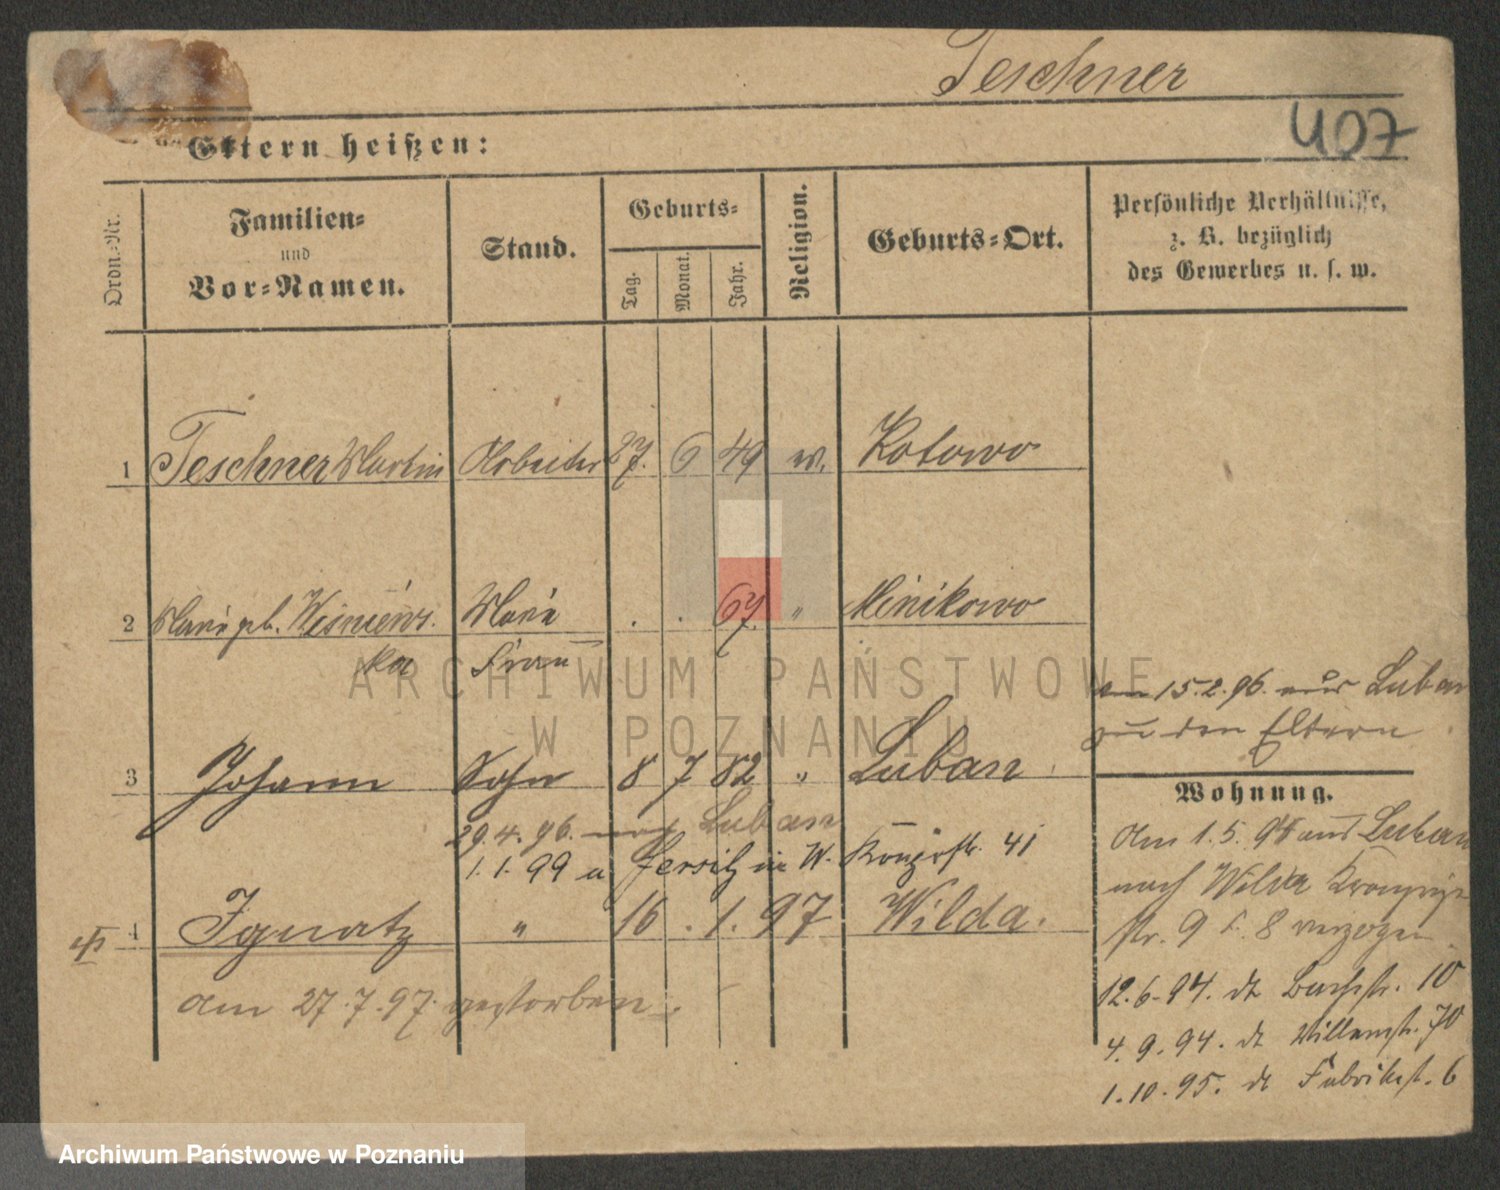 Teschner
407
Eltern heißen:
Ordn.-Nr.
Familien-
und
Vor-Namen.
Stand.
Geburts-
Tag.
Monat.
Jahr.
Religion.
Geburts-Ort.
Persönliche Verhältnisse,
z. B. bezüglich
des Gewerbes u. s. w.
1 Teschner Martin Arbeiter 27. 6 49 Kotowo
2 geb. Wisniews. Maria . . 67. " Minikowo
ka Frau
am 15.2.96. aus Luban
zu den Eltern
3 Johann Sohn 8 7 82 " Luban
Wohnung.
29.4.96. nach Luban
1.1.99 a Jersitz in W. 41
4 Ignatz " 16 . 1. 97 Wilda.
am 27.7.97. gestorben.
Am 1.5.94 aus Luban
nach Wilda
str. 9 b. 8 verzogen
12.6.94. dt Bachstr. 10
4.9.94. dt 70
1.10.95. dt Fabrikst. 6
ARCHIWUM PAŃSTWOWE
W POZNANIU
Archiwum Państwowe w Poznaniu